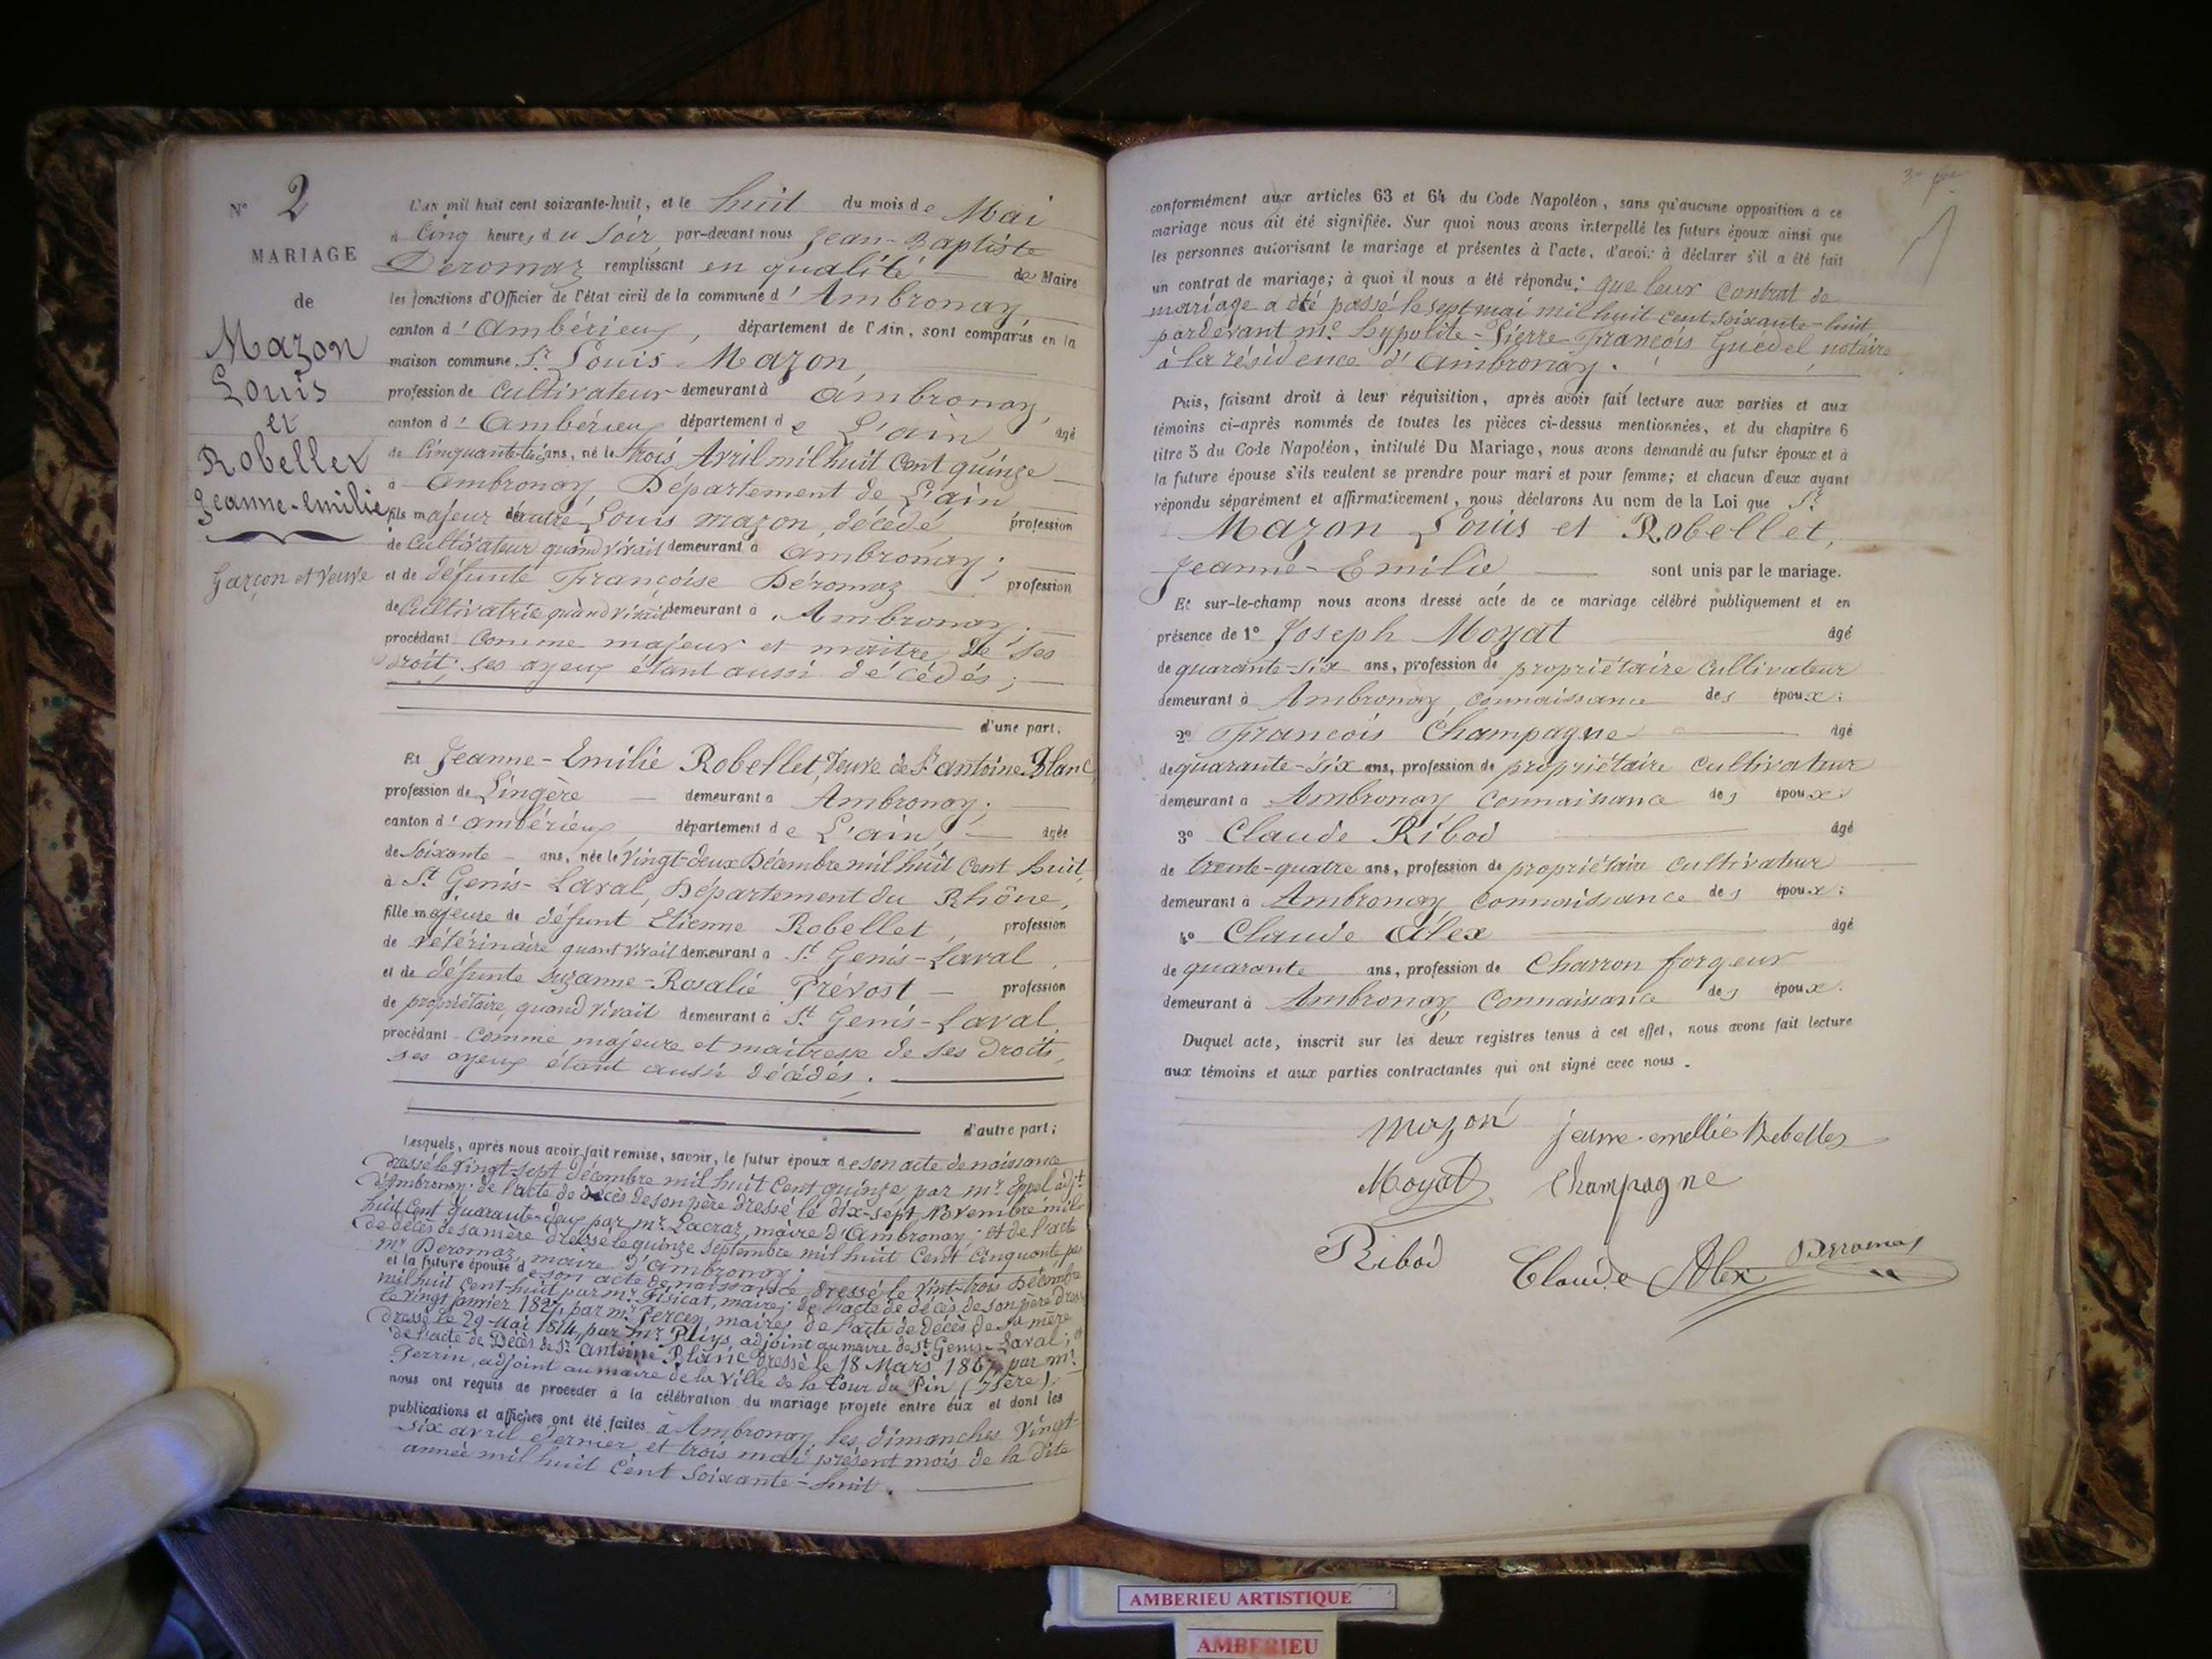 N° 2
MARIAGE
de
Mazon
Louis
et
Robellet
Jeanne-Emilie
Garçon et Veuve
L'AN mil huit cent soixante-huit, et le huit du mois de Mai
à Cinq heures du Soir par-devant nous Jean-Baptiste
Deromaz remplissant en qualité de Maire
les fonctions d'Officier de l'état civil de la commune d'Ambronay
canton d'Ambérieux, département de l'Ain, sont comparus en la
maison commune Sr. Louis Mazon,
profession de Cultivateur demeurant à Ambronay,
canton d'Ambérieux département de L'ain âgé
de Cinquante-trois ans, né le trois Avril mil huit Cent quinze
à Ambronay, Département de L'ain
fils majeur de Louis Mazon, décédé, profession
de Cultivateur quand vivait demeurant à Ambronay;
et de défunte Françoise Déromaz profession
de Cultivatrie quand vivait demeurant à Ambronay;
procédant Comme majeur et maitre de ses
droit; ses ayeux étant aussi décédés;
d'une part.
Et Jeanne-Emilie Robellet, Veuve de Sr. antoine Blanc
profession de Lingère demeurant à Ambronay;
canton d'ambérieux, département de L'ain, âgée
de Soixante ans, née le Vingt-deux Décembre mil huit Cent huit,
à St. Genis-Laval, Département du Rhône,
fille majeure de défunt Etienne Robellet, profession
de vétérinaire quant vivait demeurant à St. Genis-Laval,
et de défunte Suzanne-Rosalie Prévost profession
de propriétaire, quand vivait demeurant à St. Genis-Laval,
procédant Comme majeure et maitresse de ses Droits,
ses ayeux étant aussi décédés.
d'autre part;
Lesquels, après nous avoir fait remise, savoir, le futur époux de son acte de naissance
dressé le Vingt-sept décembre mil huit Cent quinze, par mr. Eppel adjt.
d'Ambronay; de l'acte de décès de son père dressé le dix-sept Novembre mil
huit Cent quarante-deux par mr. Lacraz, maire d'Ambronay; et de l'acte
de décès de sa mère dressé le quinze Septembre mil huit Cent Cinquante, par
mr. Deromaz, maire d'Ambronay;
et la future épouse de son acte de naissance dressé le Vint-trois Décembre
mil huit Cent-huit par mr. Fisicat, maire; de l'acte de décès de son père dressé
le Vingt janvier 1827, par mr. Percey, maire; de l'acte de décès de sa mère
dressé le 29 Mai 1814, par mr adjoint au maire de St. Genis-Laval; et
de l'acte de Décès de Sr. Antoine Blanc dressé le 18 Mars 1867, par mr.
Perrin, adjoint au maire de la Ville de la Tour du Pin (Isère);
nous ont requis de procéder à la célébration du mariage projeté entre eux et dont les
publications et affiches ont été faites à Ambronay, les dimanches Vingt-
six avril dernier, et trois mai présent mois de la dite
année mil huit Cent Soixante-huit.
conformément aux articles 63 et 64 du Code Napoléon, sans qu'aucune opposition à ce
mariage nous ait été signifiée. Sur quoi nous avons interpellé les futurs époux ainsi que
les personnes autorisant le mariage et présentes à l'acte, d'avoir à déclarer s'il a été fait
un contrat de mariage; à quoi il nous a été répondu: que leur Contrat de
mariage a été passé le sept mai mil huit Cent Soixante-huit
pardevant me. hypolite-Pierre-François Guédel, notaire
à la résidence d'Ambronay.
Puis, faisant droit à leur réquisition, après avoir fait lecture aux parties et aux
témoins ci-après nommés de toutes les pièces ci-dessus mentionnées, et du chapitre 6
titre 5 du Code Napoléon, intitulé Du Mariage, nous avons demandé au futur époux et à
la future épouse s'ils veulent se prendre pour mari et pour femme; et chacun d'eux ayant
répondu séparément et affirmativement, nous déclarons Au nom de la Loi que Sr.
Mazon Louis et Robellet,
Jeanne-Emilie sont unis par le mariage.
Et sur-le-champ nous avons dressé acte de ce mariage célébré publiquement et en
présence de 1° Joseph Moyat âgé
de quarante-six ans, profession de propriétaire Cultivateur
demeurant à Ambronay, connaissance des époux:
2° François Champagne âgé
de quarante-Six ans, profession de propriétaire Cultivateur
demeurant à Ambronay Connaissance des époux:
3° Claude Ribod âgé
de trente-quatre ans, profession de propriétaire Cultivateur
demeurant à Ambronay, Connaissance des époux:
4° Claude Alex âgé
de quarante ans, profession de Charron forgeur
demeurant à Ambronay, Connaissance des époux.
Duquel acte, inscrit sur les deux registres tenus à cet effet, nous avons fait lecture
aux témoins et aux parties contractantes qui ont signé avec nous.
Mazon Jeanne-emellie Rebelles
Moyat Champagne
Ribod Claude Alex Deromas
AMBERIEU ARTISTIQUE
AMBERIEU